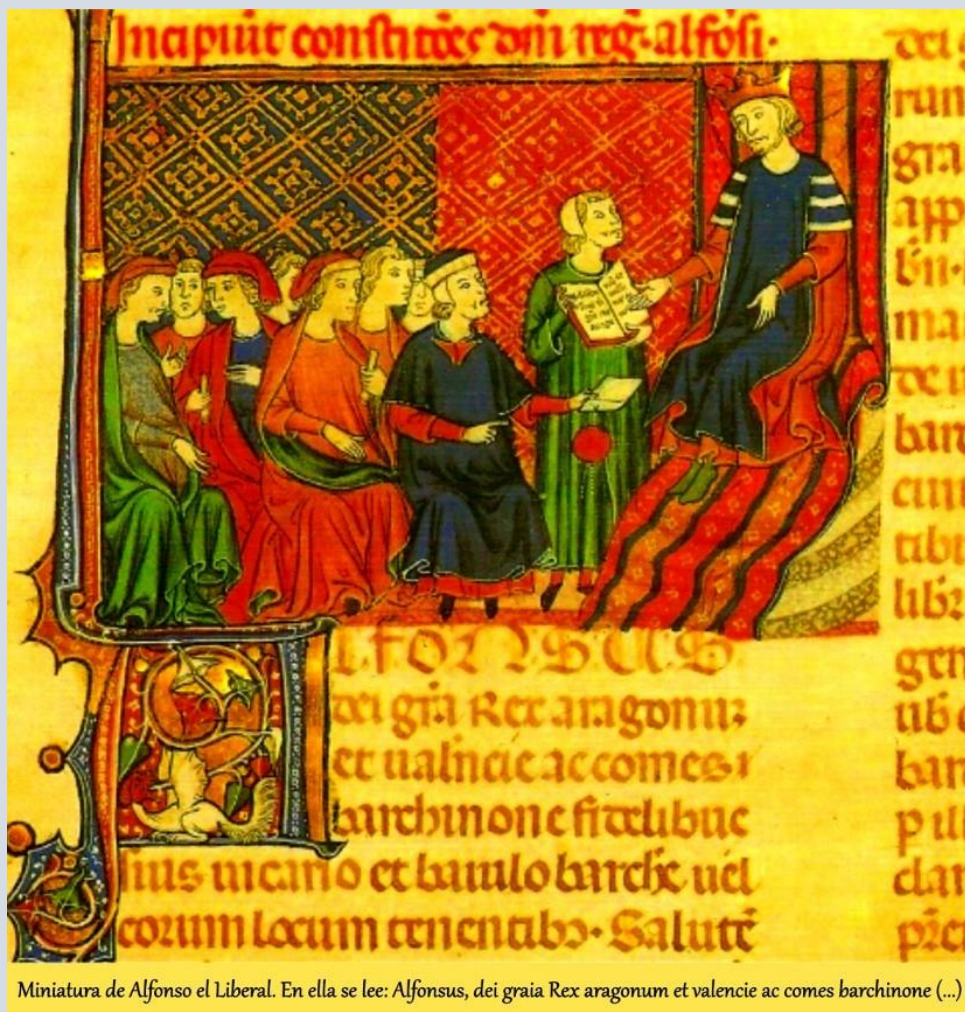 Incipiūt constitōēs dn̄i reg. alfōsi.
ALFONSUS
dei gr̄a Rex aragonum
et ualncie ac comes
barchinone fidelibuc
suis uicario et baiulo barch̄ uel
eorum locum tenentibꝫ. Salutē
dei g
run
gra
app
bn̄.
ma
de
barc
cum
tibu
libr
gen
ban
p ill
clar
Miniatura de Alfonso el Liberal. En ella se lee: Alfonsus, dei graia Rex aragonum et valencie ac comes barchinone (...)